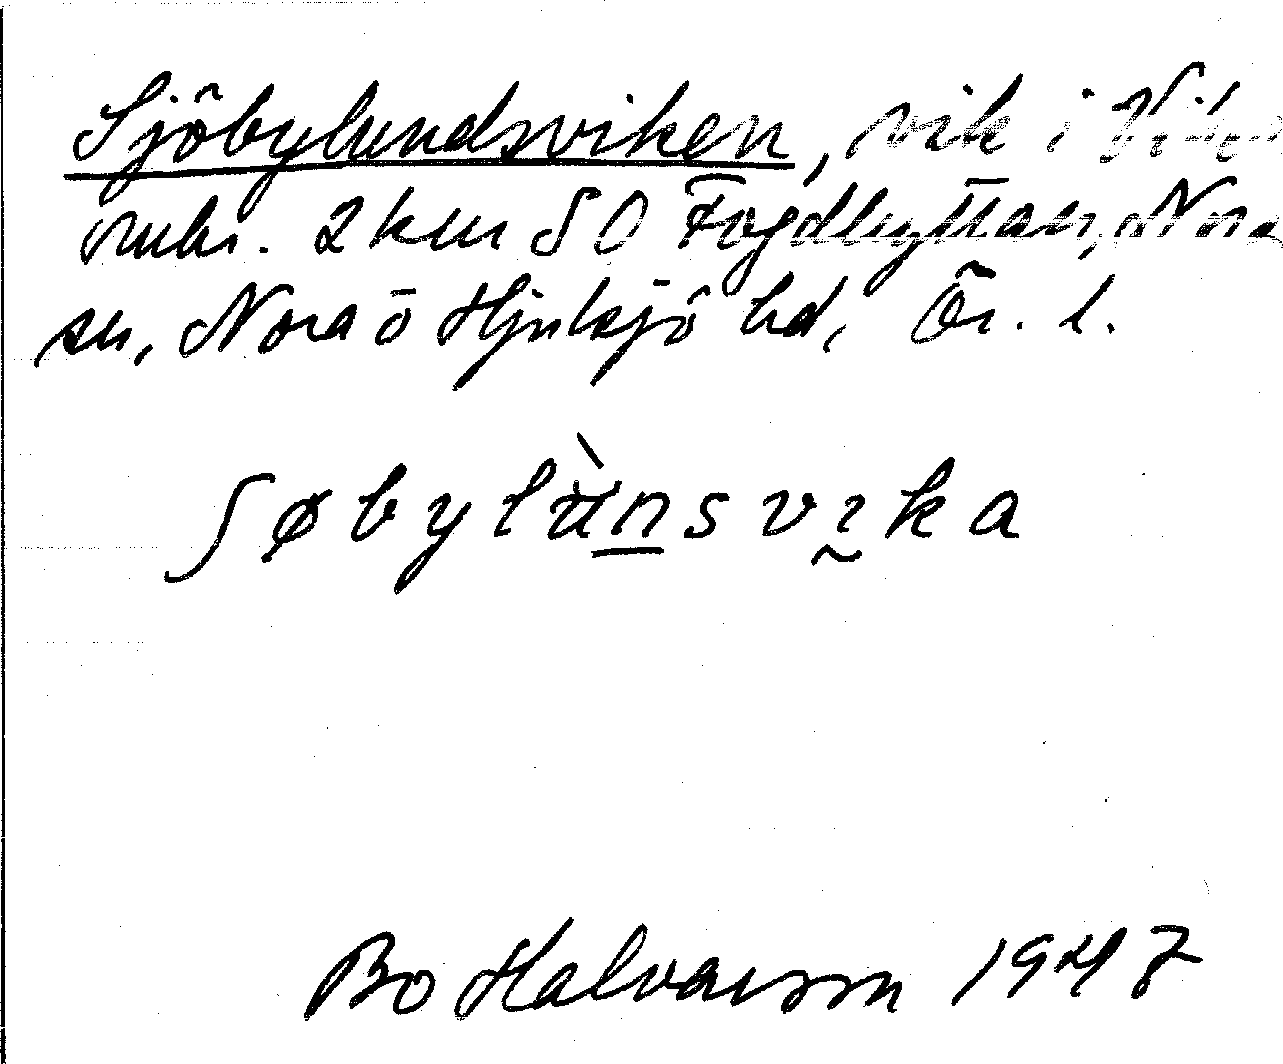 Sjöbylundsviken, vik i
omkr. 2 km SO Fogdhyttan, Nora
sn, Nora o Hjulsjö hd, Ör. l.
ʃøbylùnsvika
Bo Halvarson 1947